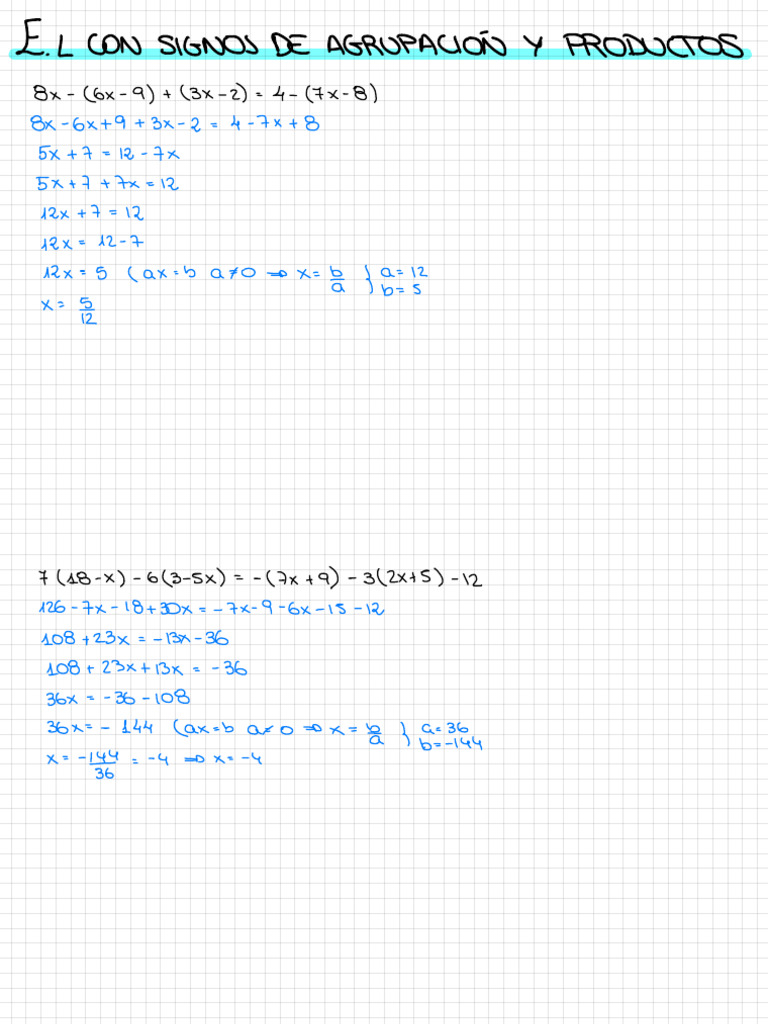 E.L CON SIGNOS DE AGRUPACIÓN Y PRODUCTOS
8x - (6x - 9) + (3x - 2) = 4 - (7x - 8)
8x - 6x + 9 + 3x - 2 = 4 - 7x + 8
5x + 7 = 12 - 7x
5x + 7 + 7x = 12
12x + 7 = 12
12x = 12 - 7
12x = 5 (ax = b a ≠ 0 ⇒ x = b/a } a = 12 b = 5
x = 5/12
7(18 - x) - 6(3 - 5x) = -(7x + 9) - 3(2x + 5) - 12
126 - 7x - 18 + 30x = -7x - 9 - 6x - 15 - 12
108 + 23x = -13x - 36
108 + 23x + 13x = -36
36x = -36 - 108
36x = -144 (ax = b a ≠ 0 ⇒ x = b/a } a = 36 b = -144
x = -144/36 = -4 ⇒ x = -4